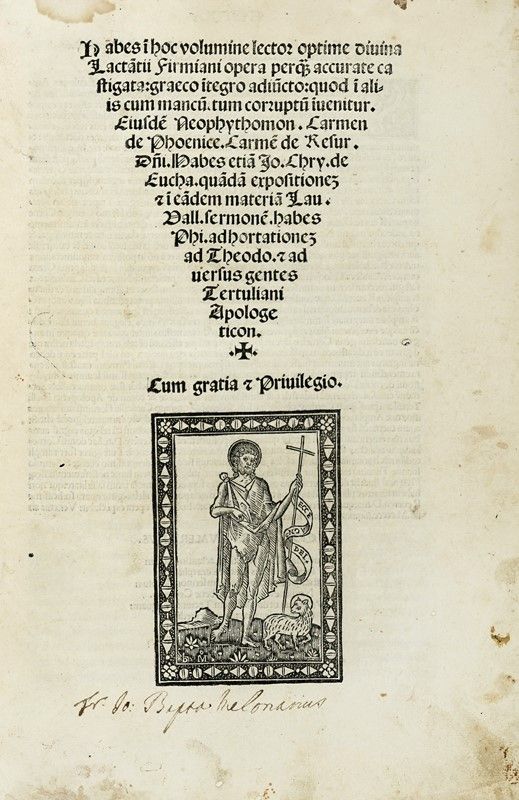 Habes ī hoc volumine lector optime diuina
Lactātii Firmiani opera perq̄ʒ accurate ca
stigata:graeco ītegro adiūcto:quod ī ali-
is cum mancū.tum corruptū īuenitur.
Eiusdē Neophythomon. Carmen
de Phoenice.Carmē de Resur.
Dñi.Habes etiā Jo.Chry.de
Eucha.quādā expositioneʒ
⁊ ī eādem materiā Lau.
Vall.sermonē.habes
Phi.adhortationeʒ
ad Theodo.⁊ ad
uersus gentes
Tertuliani
Apologe
ticon.
Cum gratia ⁊ Priuilegio.
ECCE
DEI
Fr. Jo: Bapta